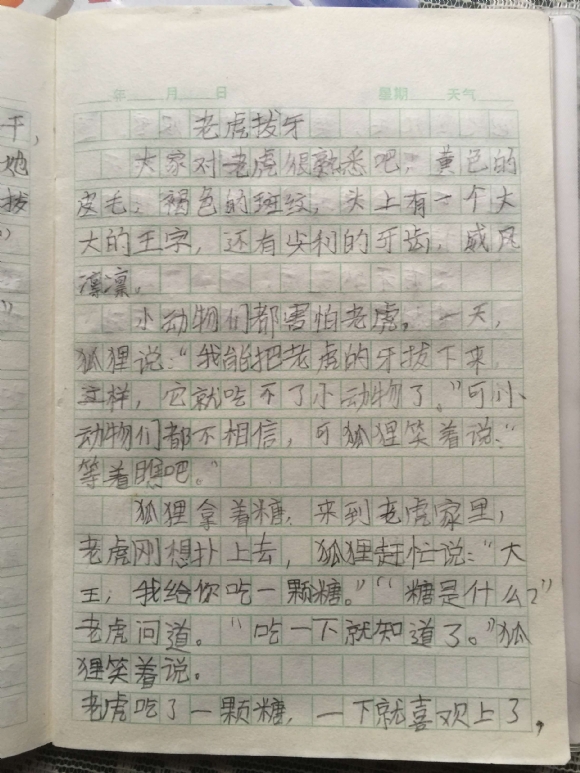 年 月 日 星期 天气
老虎拔牙
大家对老虎很熟悉吧，黄色的
皮毛，褐色的斑纹，头上有一个大
大的王字，还有尖利的牙齿，威风
凛凛。
小动物们都害怕老虎。一天，
狐狸说：“我能把老虎的牙拔下来，
这样，它就吃不了小动物了。”可小
动物们都不相信，可狐狸笑着说：“
等着瞧吧。”
狐狸拿着糖，来到老虎家里，
老虎刚想扑上去，狐狸赶忙说：“大
王，我给你吃一颗糖。”“糖是什么？”
老虎问道。“吃一下就知道了。”狐
狸笑着说。
老虎吃了一颗糖，一下就喜欢上了，
干，
她
拔